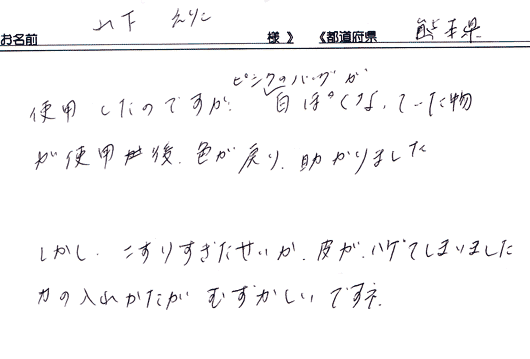 お名前 山下 えりこ 様 》 《都道府県 熊本県
ピンクのバッグが
使用したのですが、白ぽくなっていた物
が使用後、色が戻り、助かりました
しかし、こすりすぎたせいか、皮が、ハゲてしまいました
力の入れかたがむずかしいですネ。